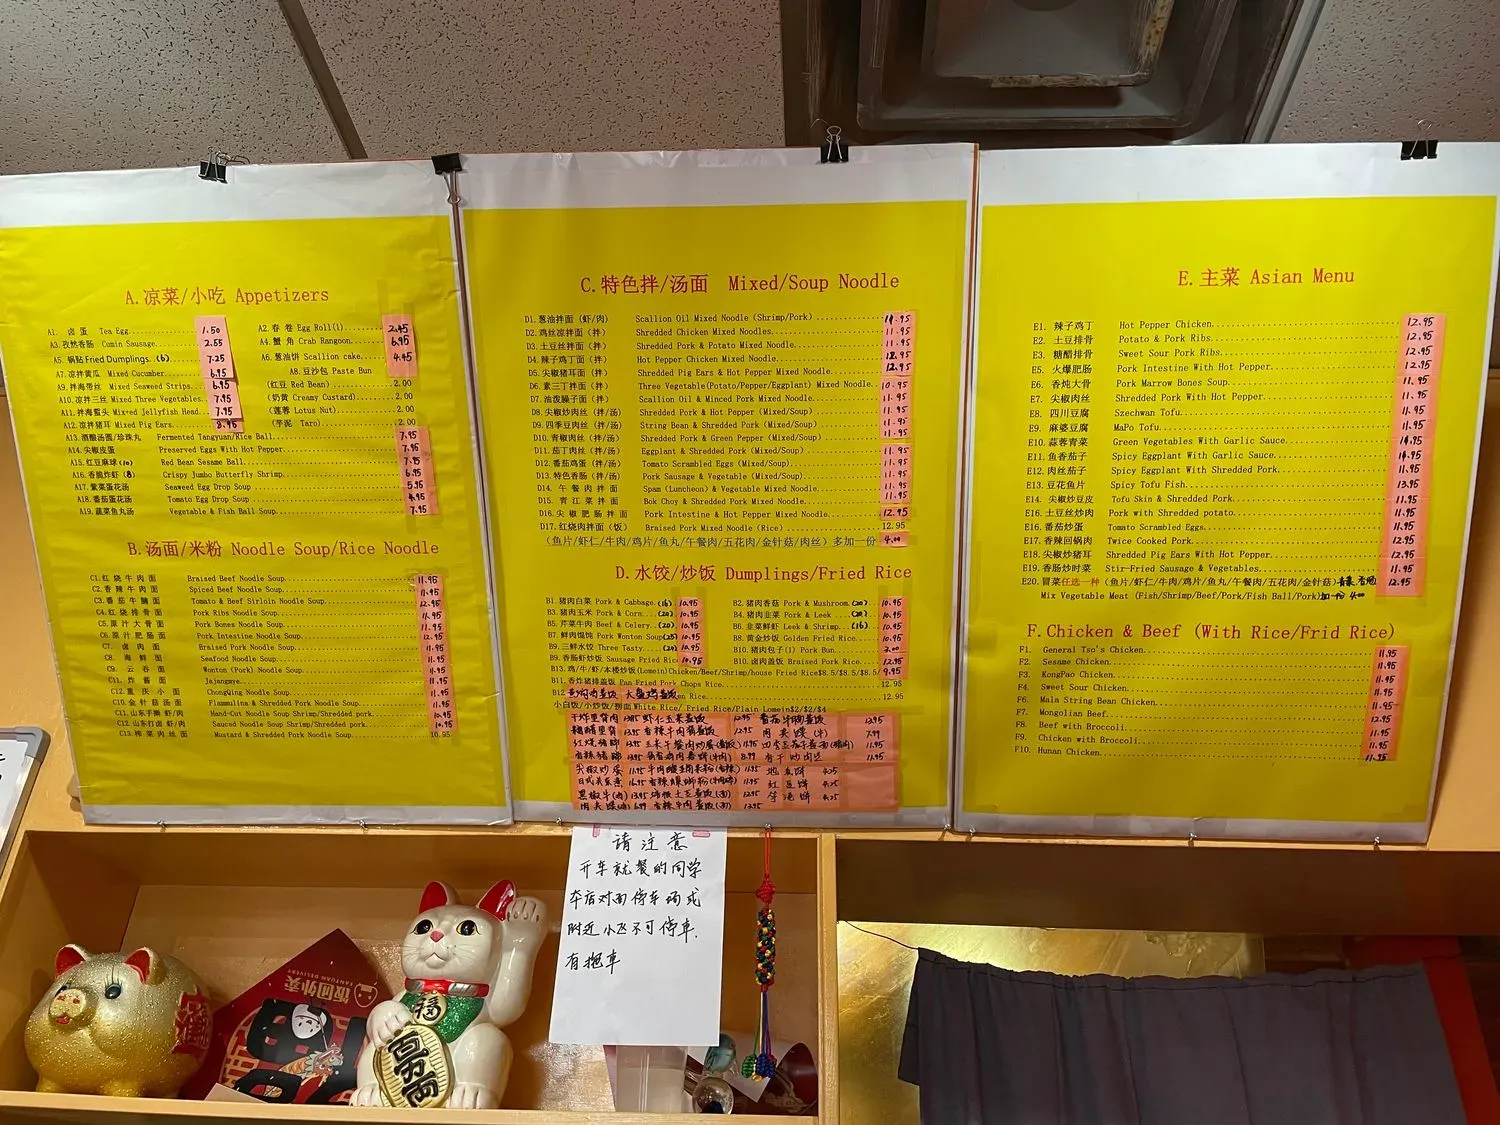 A.凉菜/小吃 Appetizers
A1. 卤 蛋 Tea Egg 1.50
A2.春 卷 Egg Roll(1) 2.45
A3.孜然香肠 Comin Sausage 2.55
A4.蟹 角 Crab Rangoon 6.95
A5. 锅贴 Fried Dumplings. (6) 7.25
A6.葱油饼 Scallion cake 4.45
A7.凉拌黄瓜 Mixed Cucumber 6.95
A8.豆沙包 Paste Bun
(红豆 Red Bean) 2.00
(奶黄 Creamy Custard) 2.00
(莲蓉 Lotus Nut) 2.00
(芋泥 Taro) 2.00
A9.拌海带丝 Mixed Seaweed Strips 6.95
A10.凉拌三丝 Mixed Three Vegetables 7.95
A11.拌海蜇头 Mixed Jellyfish Head 7.95
A12.凉拌猪耳 Mixed Pig Ears 8.95
A13.酒酿汤圆/珍珠丸 Fermented Tangyuan/Rice Ball 7.95
A14.尖椒皮蛋 Preserved Eggs With Hot Pepper 7.95
A15.红豆麻球(10) Red Bean Sesame Ball 7.95
A16.香脆炸虾(8) Crispy Jumbo Butterfly Shrimp 6.95
A17.紫菜蛋花汤 Seaweed Egg Drop Soup 5.95
A18.番茄蛋花汤 Tomato Egg Drop Soup 4.95
A19.蔬菜鱼丸汤 Vegetable & Fish Ball Soup 7.95
B.汤面/米粉 Noodle Soup/Rice Noodle
C1.红 烧 牛 肉 面 Braised Beef Noodle Soup 11.95
C2.香 辣 牛 肉 面 Spiced Beef Noodle Soup 11.95
C3.番 茄 牛 腩 面 Tomato & Beef Sirloin Noodle Soup 12.95
C4.红 烧 排 骨 面 Pork Ribs Noodle Soup 11.95
C5.原 汁 大 骨 面 Pork Bones Noodle Soup 11.95
C6.原 汁 肥 肠 面 Pork Intestine Noodle Soup 12.95
C7. 卤 肉 面 Braised Pork Noodle Soup 11.95
C8. 海 鲜 面 Seafood Noodle Soup 11.95
C9. 云 吞 面 Wonton (Pork) Noodle Soup 11.95
C11. 炸 酱 面 Jajangmye 11.95
C12.重 庆 小 面 ChongQing Noodle Soup 11.95
C10.金 针 菇 汤 面 Flammulina & Shredded Pork Noodle Soup 11.95
C11.山东手擀 虾/肉 Hand-Cut Noodle Soup Shrimp/Shredded pork 10.95
C12.山东打卤 虾/肉 Sauced Noodle Soup Shrimp/Shredded pork 10.95
C13.榨 菜 肉 丝 面 Mustard & Shredded Pork Noodle Soup 10.95
C.特色拌/汤面 Mixed/Soup Noodle
D1.葱油拌面(虾/肉) Scallion Oil Mixed Noodle (Shrimp/Pork) 11.95
D2.鸡丝凉拌面(拌) Shredded Chicken Mixed Noodles 11.95
D3.土豆丝拌面(拌) Shredded Pork & Potato Mixed Noodle 11.95
D4.辣子鸡丁面(拌) Hot Pepper Chicken Mixed Noodle 12.95
D5.尖椒猪耳面(拌) Shredded Pig Ears & Hot Pepper Mixed Noodle 12.95
D6.素三丁拌面(拌) Three Vegetable(Potato/Pepper/Eggplant) Mixed Noodle 10.95
D7.油泼臊子面(拌) Scallion Oil & Minced Pork Mixed Noodle 11.95
D8.尖椒炒肉丝(拌/汤) Shredded Pork & Hot Pepper (Mixed/Soup) 11.95
D9.四季豆肉丝(拌/汤) String Bean & Shredded Pork (Mixed/Soup) 11.95
D10.青椒肉丝(拌/汤) Shredded Pork & Green Pepper (Mixed/Soup) 11.95
D11.茄丁肉丝(拌/汤) Eggplant & Shredded Pork (Mixed/Soup) 11.95
D12.番茄鸡蛋(拌/汤) Tomato Scrambled Eggs (Mixed/Soup) 11.95
D13.特色香肠(拌/汤) Pork Sausage & Vegetable (Mixed/Soup) 11.95
D14. 午 餐 肉 拌 面 Spam (Luncheon) & Vegetable Mixed Noodle 11.95
D15. 青 江 菜 拌 面 Bok Choy & Shredded Pork Mixed Noodle 11.95
D16.尖 椒 肥 肠 拌 面 Pork Intestine & Hot Pepper Mixed Noodle 12.95
D17.红烧肉拌面(饭) Braised Pork Mixed Noodle (Rice) 12.95
(鱼片/虾仁/牛肉/鸡片/鱼丸/午餐肉/五花肉/金针菇/肉丝)多加一份 4.00
D.水饺/炒饭 Dumplings/Fried Rice
B1.猪肉白菜 Pork & Cabbage.(16) 10.95
B2.猪肉香菇 Pork & Mushroom.(20) 10.95
B3.猪肉玉米 Pork & Corn (20) 10.95
B4.猪肉韭菜 Pork & Leek (20) 10.95
B5.芹菜牛肉 Beef & Celery (20) 10.95
B6.韭菜鲜虾 Leek & Shrimp (16) 10.95
B7.鲜肉馄饨 Pork Wonton Soup(25) 10.95
B8.黄金炒饭 Golden Fried Rice 10.95
B9.三鲜水饺 Three Tasty (20) 10.95
B10.猪肉包子(1) Pork Bun 2.00
B9.香肠虾炒饭 Sausage Fried Ric 10.95
B10.卤肉盖饭 Braised Pork Rice 12.95
B13.鸡/牛/虾/本楼炒饭(Lomein)Chicken/Beef/Shrimp/house Fried Rice$8.5/$8.5/$8.5/ 9.95
B11.香炸猪排盖饭 Pan Fried Pork Chops Rice 12.95
B12 大盘鸡盖饭 en Rice 12.95
小白饭/小炒饭/捞面White Rice/ Fried Rice/Plain Lomein$2/$2/$4
E.主菜 Asian Menu
E1. 辣子鸡丁 Hot Pepper Chicken 12.95
E2. 土豆排骨 Potato & Pork Ribs 12.95
E3. 糖醋排骨 Sweet Sour Pork Ribs 12.95
E5. 火爆肥肠 Pork Intestine With Hot Pepper 12.95
E6. 香炖大骨 Pork Marrow Bones Soup 11.95
E7. 尖椒肉丝 Shredded Pork With Hot Pepper 11.95
E8. 四川豆腐 Szechwan Tofu 11.95
E9. 麻婆豆腐 MaPo Tofu 11.95
E10.蒜蓉青菜 Green Vegetables With Garlic Sauce 11.95
E11.鱼香茄子 Spicy Eggplant With Garlic Sauce 11.95
E12.肉丝茄子 Spicy Eggplant With Shredded Pork 11.95
E13.豆花鱼片 Spicy Tofu Fish 13.95
E14. 尖椒炒豆皮 Tofu Skin & Shredded Pork 11.95
E16.土豆丝炒肉 Pork with Shredded potato 11.95
E16.番茄炒蛋 Tomato Scrambled Eggs 11.95
E17.香辣回锅肉 Twice Cooked Pork 12.95
E18.尖椒炒猪耳 Shredded Pig Ears With Hot Pepper 12.95
E19.香肠炒时菜 Stir-Fried Sausage & Vegetables 11.95
E20.冒菜任选一种(鱼片/虾仁/牛肉/鸡片/鱼丸/午餐肉/五花肉/金针菇) 12.95
Mix Vegetable Meat (Fish/Shrimp/Beef/Pork/Fish Ball/Pork)加一份 4.00
F.Chicken & Beef (With Rice/Frid Rice)
F1. General Tso's Chicken 11.95
F2. Sesame Chicken 11.95
F3. KongPao Chicken 11.95
F4. Sweet Sour Chicken 11.95
F6. Mala String Bean Chicken 11.95
F7. Mongolian Beef 12.95
F8. Beef with Broccoli 11.95
F9. Chicken with Broccoli 11.95
F10. Hunan Chicken 11.95
请注意
开车就餐的同学
本店对面停车场或
附近小区不可停车.
有拖车
饭团外卖
FANTUAN DELIVERY
福